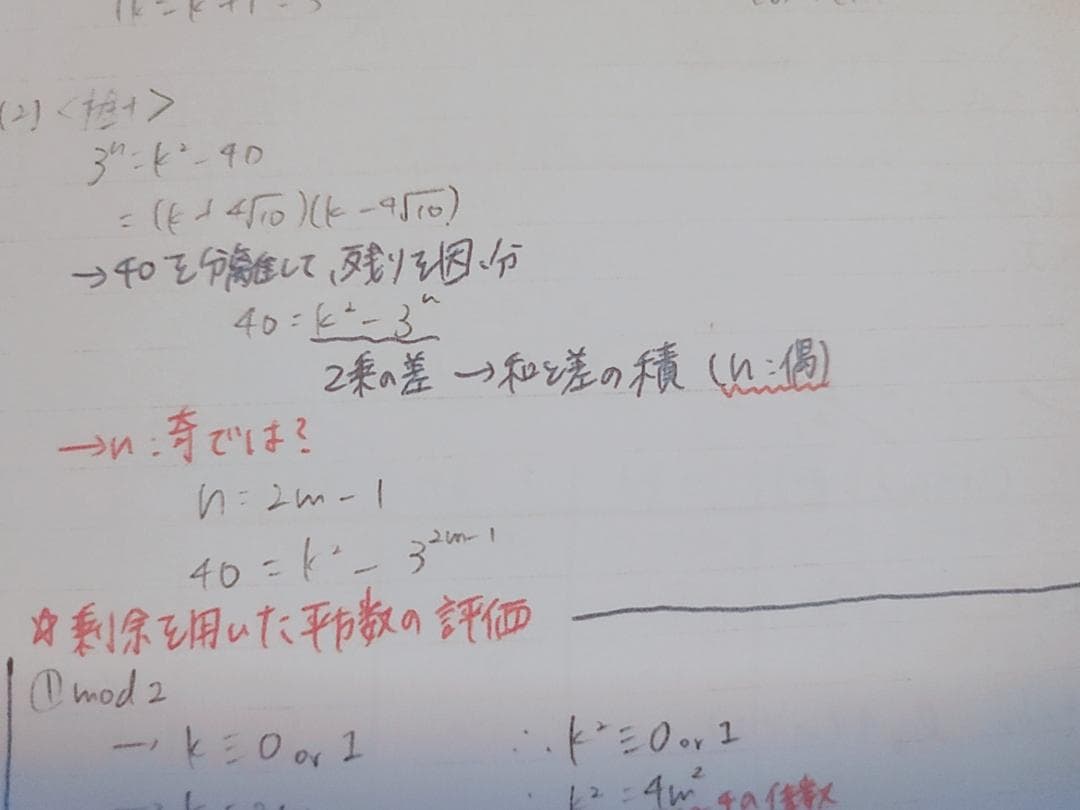 (2) <検討>
3ⁿ = k² - 40
= (k + 4√10)(k - 4√10)
→40を分離して、残りを因、分
40 = k² - 3ⁿ
2乗の差 → 和と差の積 (n:偶)
→n:奇では?
n = 2m - 1
40 = k² - 3^{2m-1}
☆剰余を用いた平方数の評価
① mod 2
→ k ≡ 0 or 1 ∴ k² ≡ 0 or 1
k² = 4m² 4の倍数